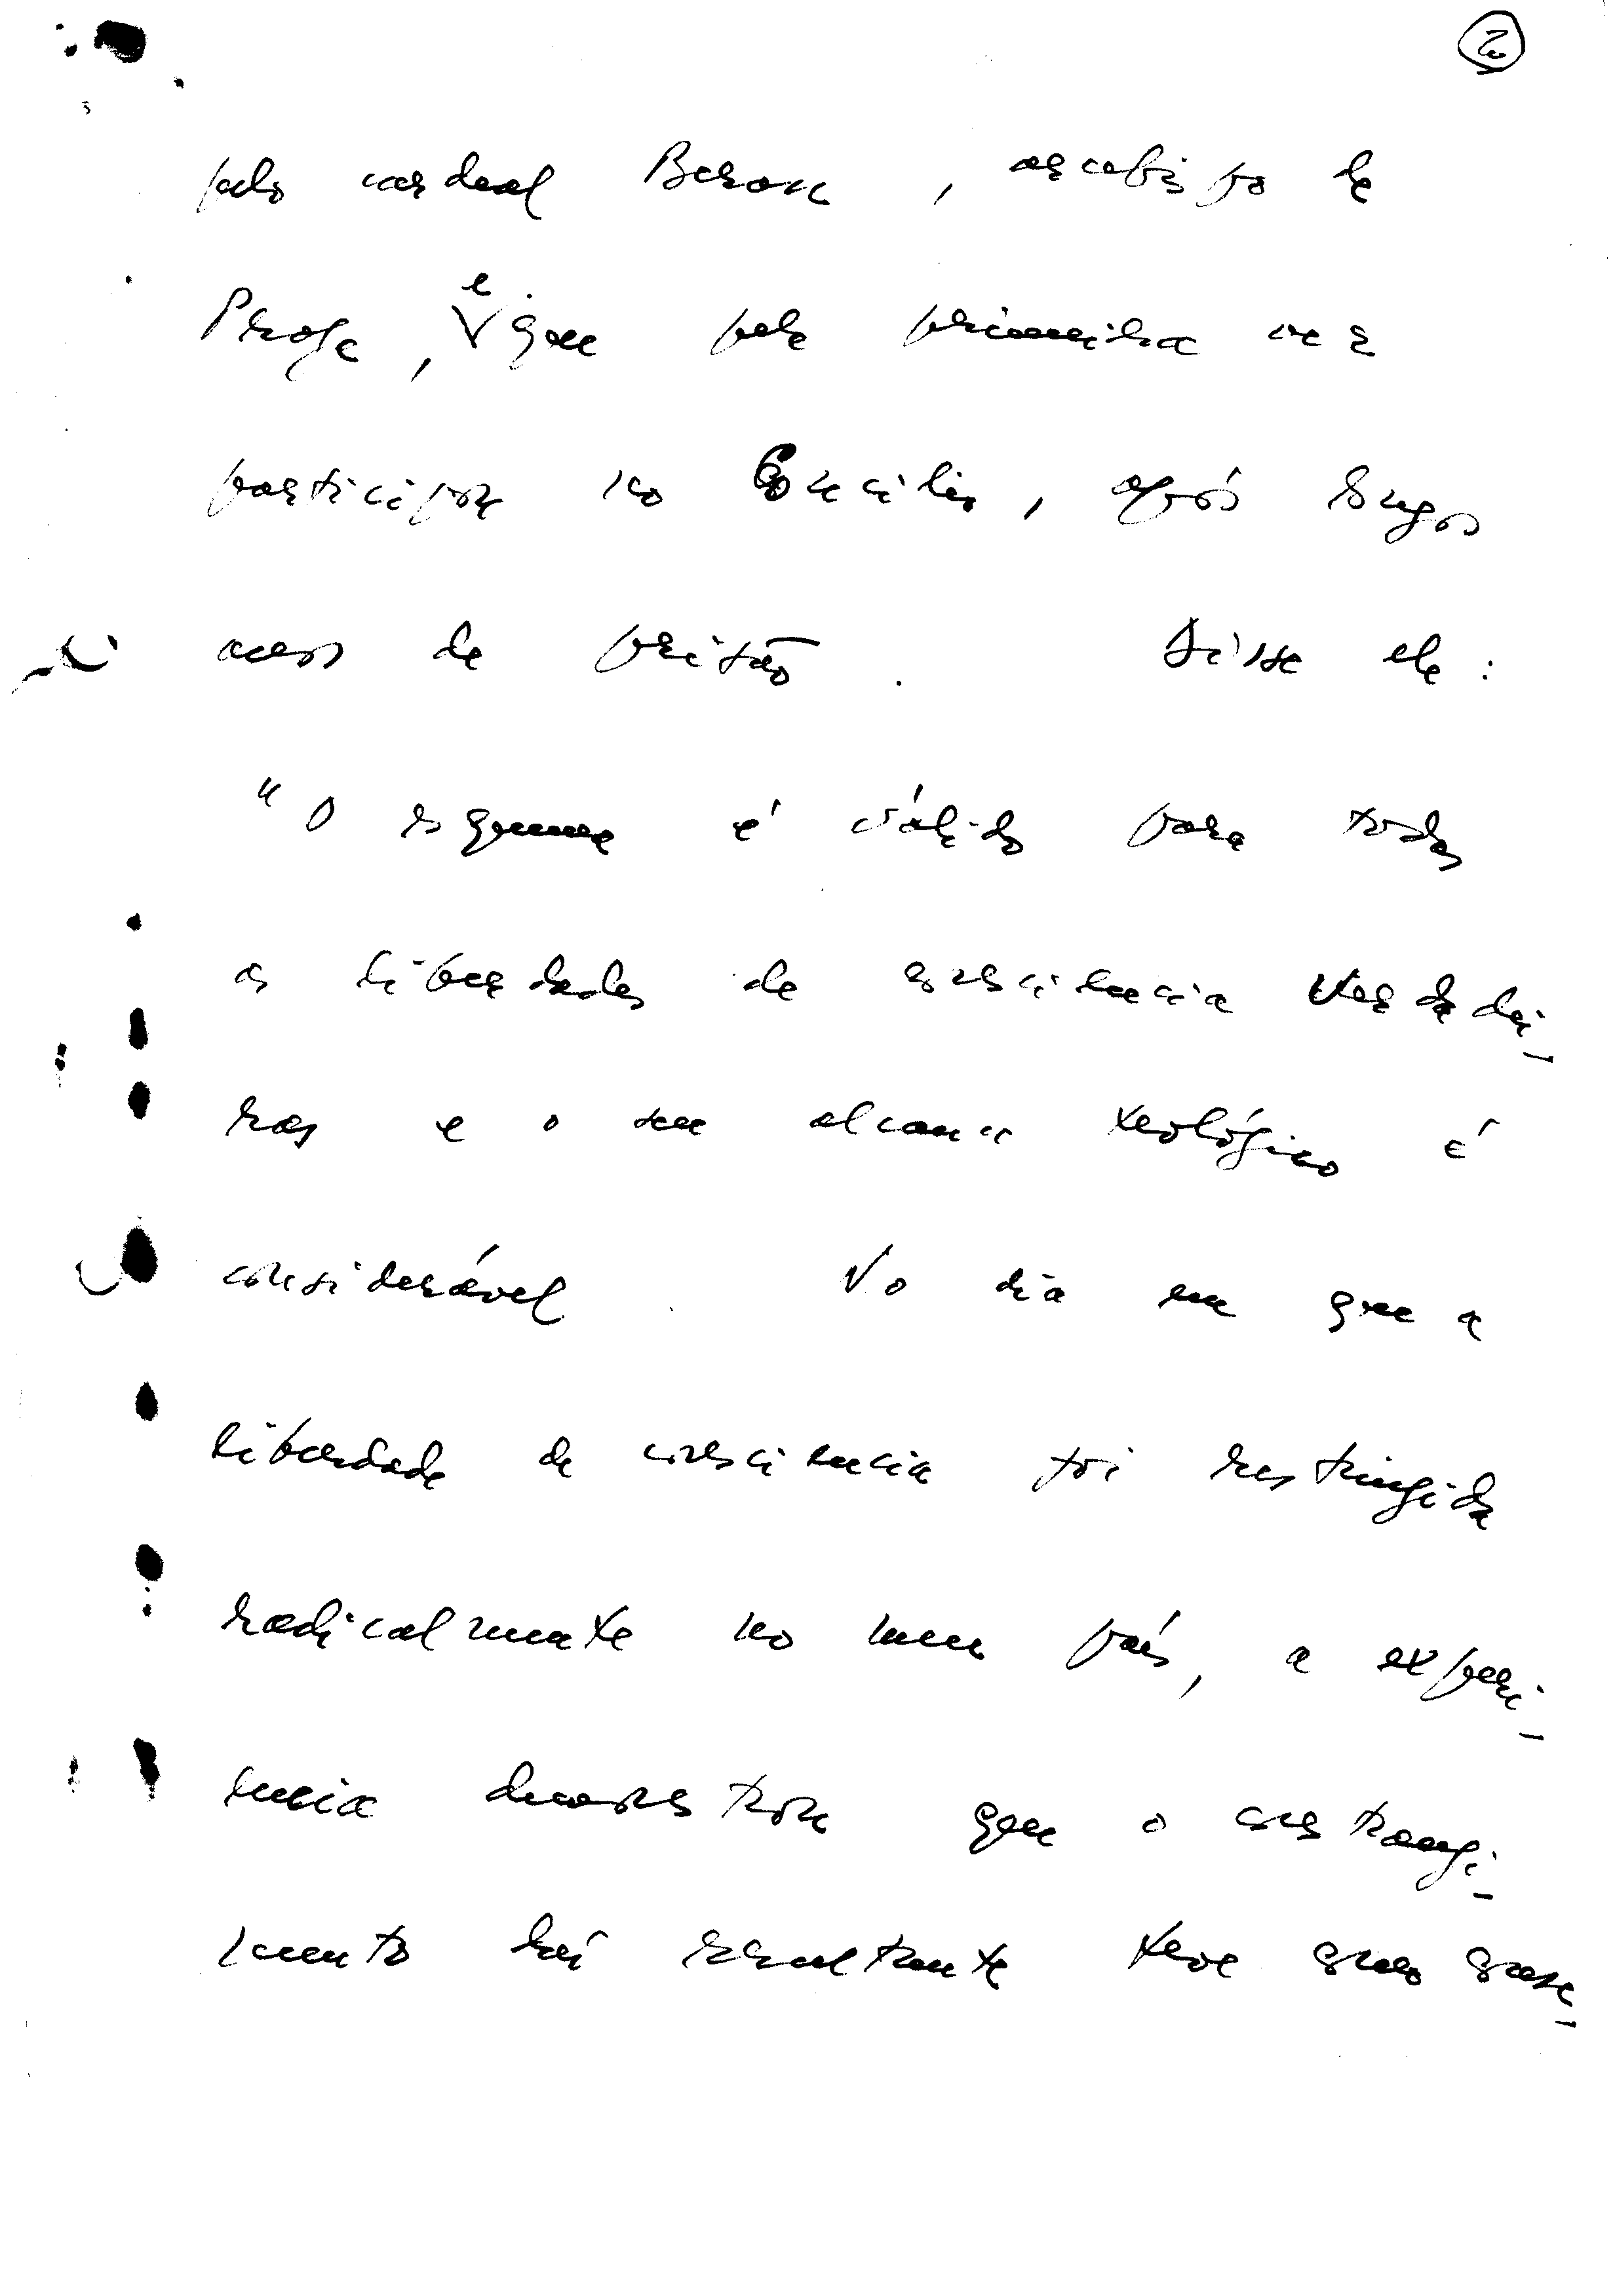 2
pelo cardeal Beran, arcebispo de
Praga, e que pela primeira vez
participou no Concílio, após longos
anos de prisão. Disse ele:
"O esquema é válido para todas
as liberdades de consciência verdadei-
ras e o seu alcance teológico é
considerável. No dia em que a
liberdade de consciência foi restringida
radicalmente no meu país, a experi-
ência demonstrou que o constrangi-
mento daí resultante teve